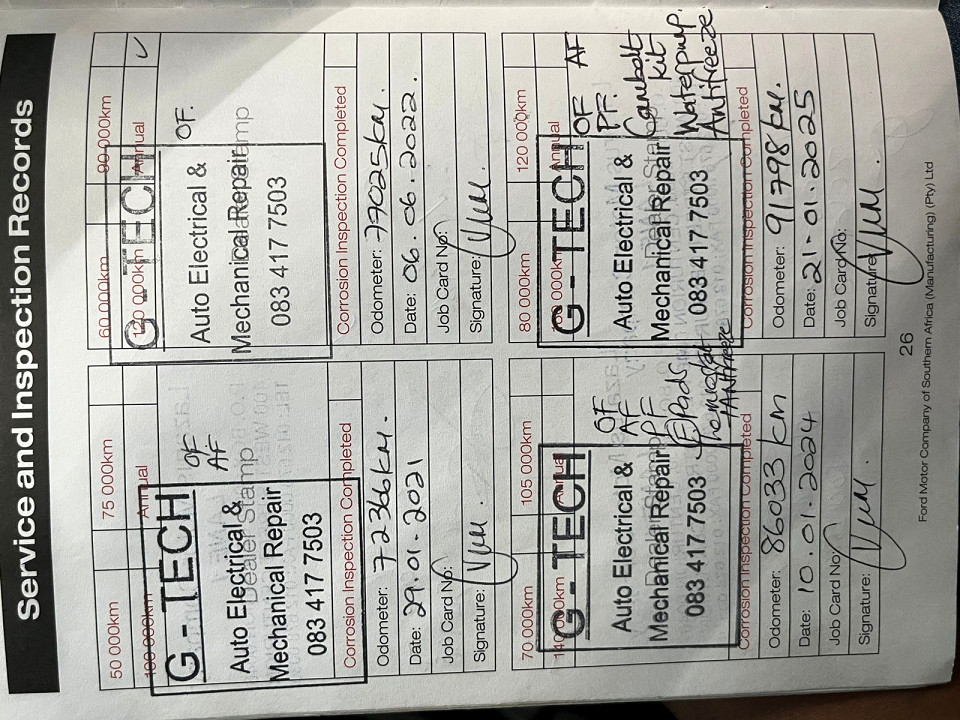 Service and Inspection Records
50 000km
75 000km
100 000km
Annual
G - TECH
Auto Electrical &
Mechanical Repair
083 417 7503
OF
AF
Dealer Stamp
Corrosion Inspection Completed
Odometer: 72366km.
Date: 29.01.2021
Job Card No:
Signature:
60 000km
90 000km
120 000km
Annual
✓
G - TECH
Auto Electrical &
Mechanical Repair
083 417 7503
OF.
Corrosion Inspection Completed
Odometer: 77025km.
Date: 06.06.2022.
Job Card No:
Signature:
70 000km
105 000km
140 000km
Annual
G - TECH
Auto Electrical &
Mechanical Repair
083 417 7503
OF
AF
PF
Pads
Thermostat
+Antifreeze
Corrosion Inspection Completed
Odometer: 86033 km
Date: 10.01.2024
Job Card No:
Signature:
80 000km
120 000km
Annual
G - TECH
Auto Electrical &
Mechanical Repair
083 417 7503
OF
AF
PF.
Cambelt
kit
Waterpump.
Antifreeze
Corrosion Inspection Completed
Odometer: 91798km.
Date: 21.01.2025
Job Card No:
Signature:
26
Ford Motor Company of Southern Africa (Manufacturing) (Pty) Ltd